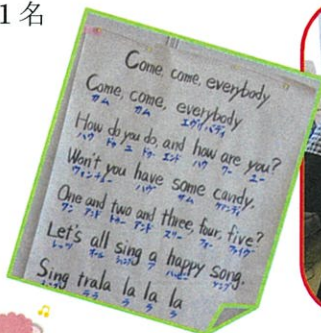 1名
Come, come, everybody
Come, come, everybody
カム カム エヴリバディ
How do you do, and how are you?
ハウ ドゥ ユ ドゥー エンド ハウ アー ユー
Won't you have some candy.
ウォンチュー ハヴ サム キャンディ
One and two and three, four, five?
ワン アンド トゥー アンド スリー フォー ファイヴ
Let's all sing a happy song.
レッツ オール シング ア ハッピー ソング
Sing trala la la la
シング ララ ラ ラ ラ